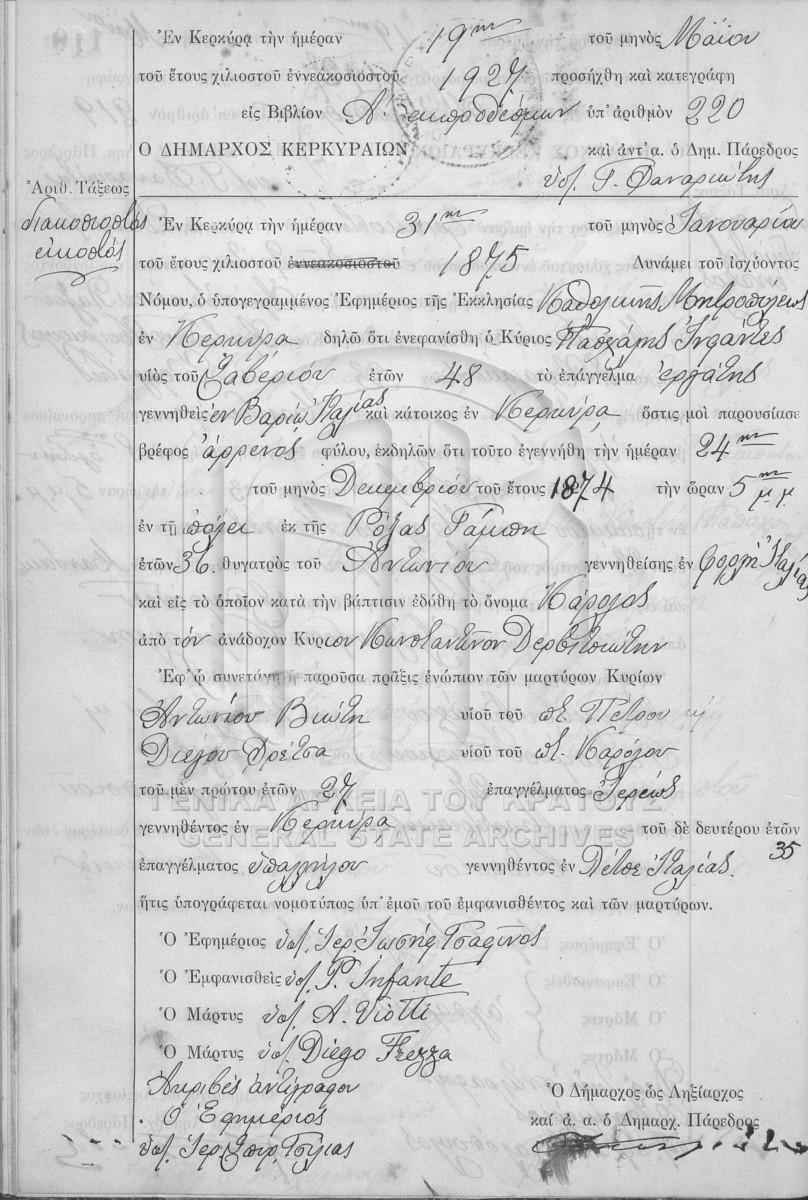 Ἐν Κερκύρᾳ τὴν ἡμέραν 19ην τοῦ μηνὸς Μαΐου
τοῦ ἔτους χιλιοστοῦ ἐννεακοσιοστοῦ 1927 προσήχθη καὶ κατεγράφη
εἰς Βιβλίον Α΄ ἐκπροθέσμων ὑπ' ἀριθμὸν 220
Ὁ ΔΗΜΑΡΧΟΣ ΚΕΡΚΥΡΑΙΩΝ καὶ ἀντ' α. ὁ Δημ. Πάρεδρος
ὑπ. Γ. Φαναριώτης
Ἀριθ. Τάξεως
διακοσιοστὸς
εἰκοστός
Ἐν Κερκύρᾳ τὴν ἡμέραν 31ην τοῦ μηνὸς Ἰανουαρίου
τοῦ ἔτους χιλιοστοῦ ἐννεακοσιοστοῦ 1875 Δυνάμει τοῦ ἰσχύοντος
Νόμου, ὁ ὑπογεγραμμένος Ἐφημέριος τῆς Ἐκκλησίας Καθολικῆς Μητροπόλεως
ἐν Κερκύρᾳ δηλῶ ὅτι ἐνεφανίσθη ὁ Κύριος Πασχάλης Ἰνφάντες
υἱὸς τοῦ Ξαβερίου ἐτῶν 48 τὸ ἐπάγγελμα ἐργάτης
γεννηθεὶς ἐν Βαρίῳ Ἰταλίας καὶ κάτοικος ἐν Κερκύρᾳ ὅστις μοὶ παρουσίασε
βρέφος ἄρρενος φύλου, ἐκδηλῶν ὅτι τοῦτο ἐγεννήθη τὴν ἡμέραν 24ην
τοῦ μηνὸς Δεκεμβρίου τοῦ ἔτους 1874 τὴν ὥραν 5ην μ.μ.
ἐν τῇ πόλει ἐκ τῆς Ρόζας
ἐτῶν 36. θυγατρὸς τοῦ Ἀντωνίου γεννηθείσης ἐν Φορλὴ Ἰταλίας
καὶ εἰς τὸ ὁποῖον κατὰ τὴν βάπτισιν ἐδόθη τὸ ὄνομα Κάρολος
ἀπὸ τὸν ἀνάδοχον Κυριον Κωνσταντῖνον Δερβιτσιώτην
Ἐφ' ᾧ συνετάγη ἡ παροῦσα πρᾶξις ἐνώπιον τῶν μαρτύρων Κυρίων
Ἀντωνίου Βιώτη υἱοῦ τοῦ ποτ. Πέτρου κ
Διέγου Φρέτσα υἱοῦ τοῦ ποτ. Καρόλου
τοῦ μὲν πρώτου ἐτῶν 27 ἐπαγγέλματος Ἱερέως
ΓΕΝΙΚΑ ΑΡΧΕΙΑ ΤΟΥ ΚΡΑΤΟΥΣ
γεννηθέντος ἐν Κερκύρᾳ τοῦ δὲ δευτέρου ἐτῶν
GENERAL STATE ARCHIVES
35
ἐπαγγέλματος ὑπαλλήλου γεννηθέντος ἐν Ἰταλίας.
ἥτις ὑπογράφεται νομοτύπως ὑπ' ἐμοῦ τοῦ ἐμφανισθέντος καὶ τῶν μαρτύρων.
Ὁ Ἐφημέριος ὑπ. Ἱερ. Ἰωσὴφ
Ὁ Ἐμφανισθεὶς ὑπ. P. Infante
Ὁ Μάρτυς ὑπ. A. Viotti
Ὁ Μάρτυς ὑπ. Diego Frezza
Ἀκριβὲς ἀντίγραφον
Ὁ Ἐφημέριος
ὑπ. Ἱερ. Σπιρ.
Ὁ Δήμαρχος ὡς Ληξίαρχος
καί ἀ. α. ὁ Δημαρχ. Πάρεδρος